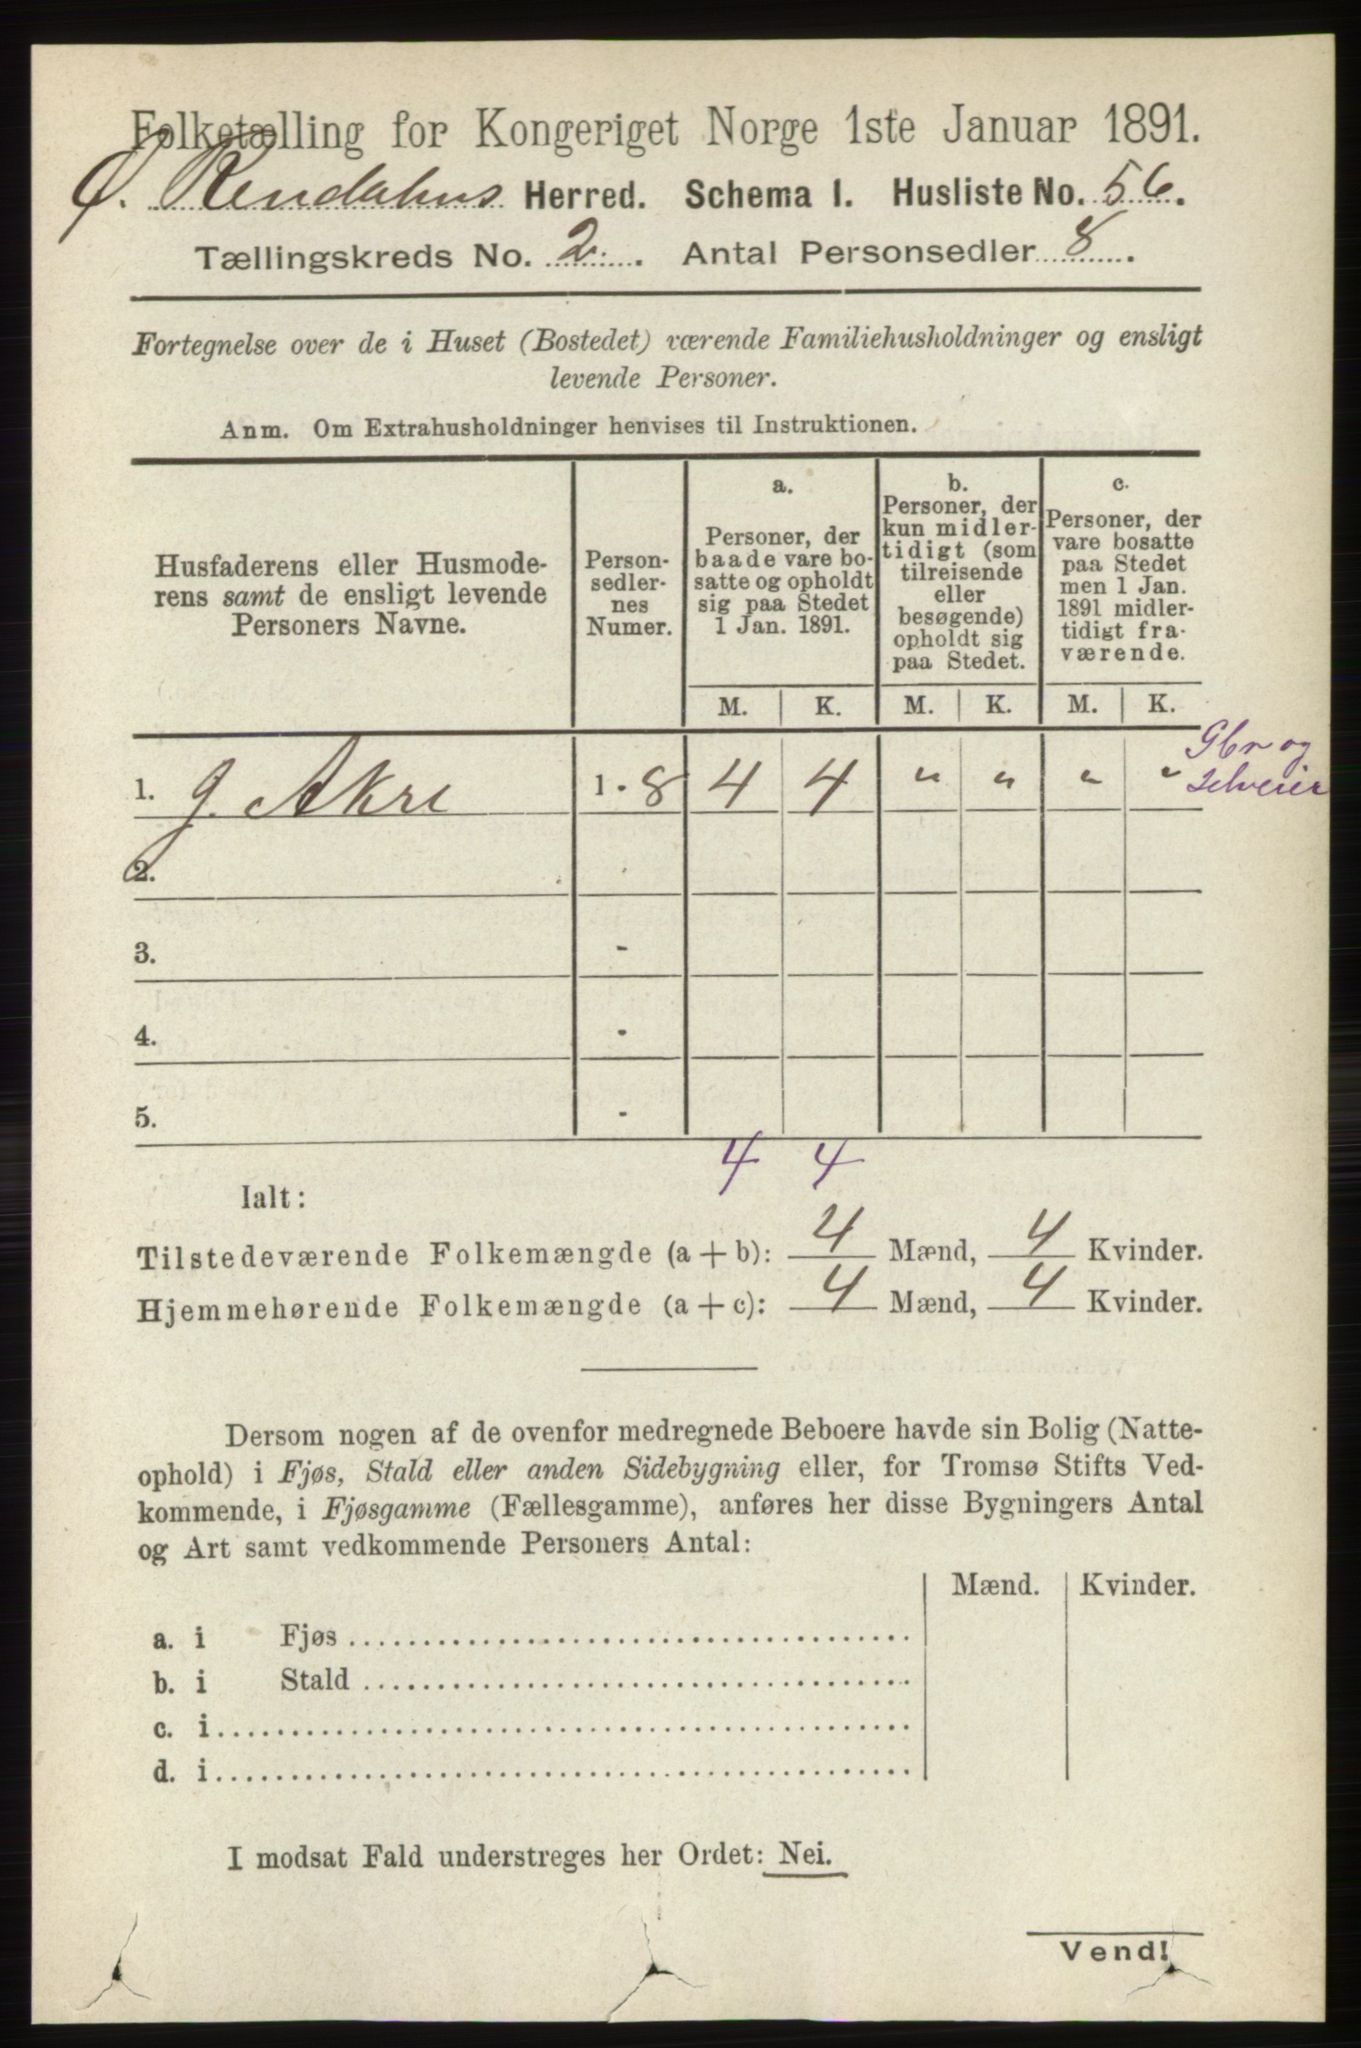 Folketælling for Kongeriget Norge 1ste Januar 1891.
Ø. Rendahns Herred. Schema I. Husliste No. 56.
Tællingskreds No. 2. Antal Personsedler 8.
Fortegnelse over de i Huset (Bostedet) værende Familiehusholdninger og ensligt
levende Personer.
Anm. Om Extrahusholdninger henvises til Instruktionen.
Husfaderens eller Husmode-
rens samt de ensligt levende
Personers Navne.
Person-
sedler-
nes
Numer.
a.
Personer, der
baade vare bo-
satte og opholdt
sig paa Stedet
1 Jan. 1891.
b.
Personer, der
kun midler-
tidigt (som
tilreisende
eller
besøgende)
opholdt sig
paa Stedet.
c.
Personer, der
vare bosatte
paa Stedet
men 1 Jan.
1891 midler-
tidigt fra-
værende.
M. K. M. K. M. K.
Gbr og
Selveier
1. G. Akre 1 - 8 4 4 " " " "
2.
3. -
4. -
5. -
4 4
Ialt:
Tilstedeværende Folkemængde (a + b): 4 Mænd, 4 Kvinder.
Hjemmehørende Folkemængde (a + c): 4 Mænd, 4 Kvinder.
Dersom nogen af de ovenfor medregnede Beboere havde sin Bolig (Natte-
ophold) i Fjøs, Stald eller anden Sidebygning eller, for Tromsø Stifts Ved-
kommende, i Fjøsgamme (Fællesgamme), anføres her disse Bygningers Antal
og Art samt vedkommende Personers Antal:
Mænd. Kvinder.
a. i Fjøs
b. i Stald
c. i
d. i
I modsat Fald understreges her Ordet: Nei.
Vend!